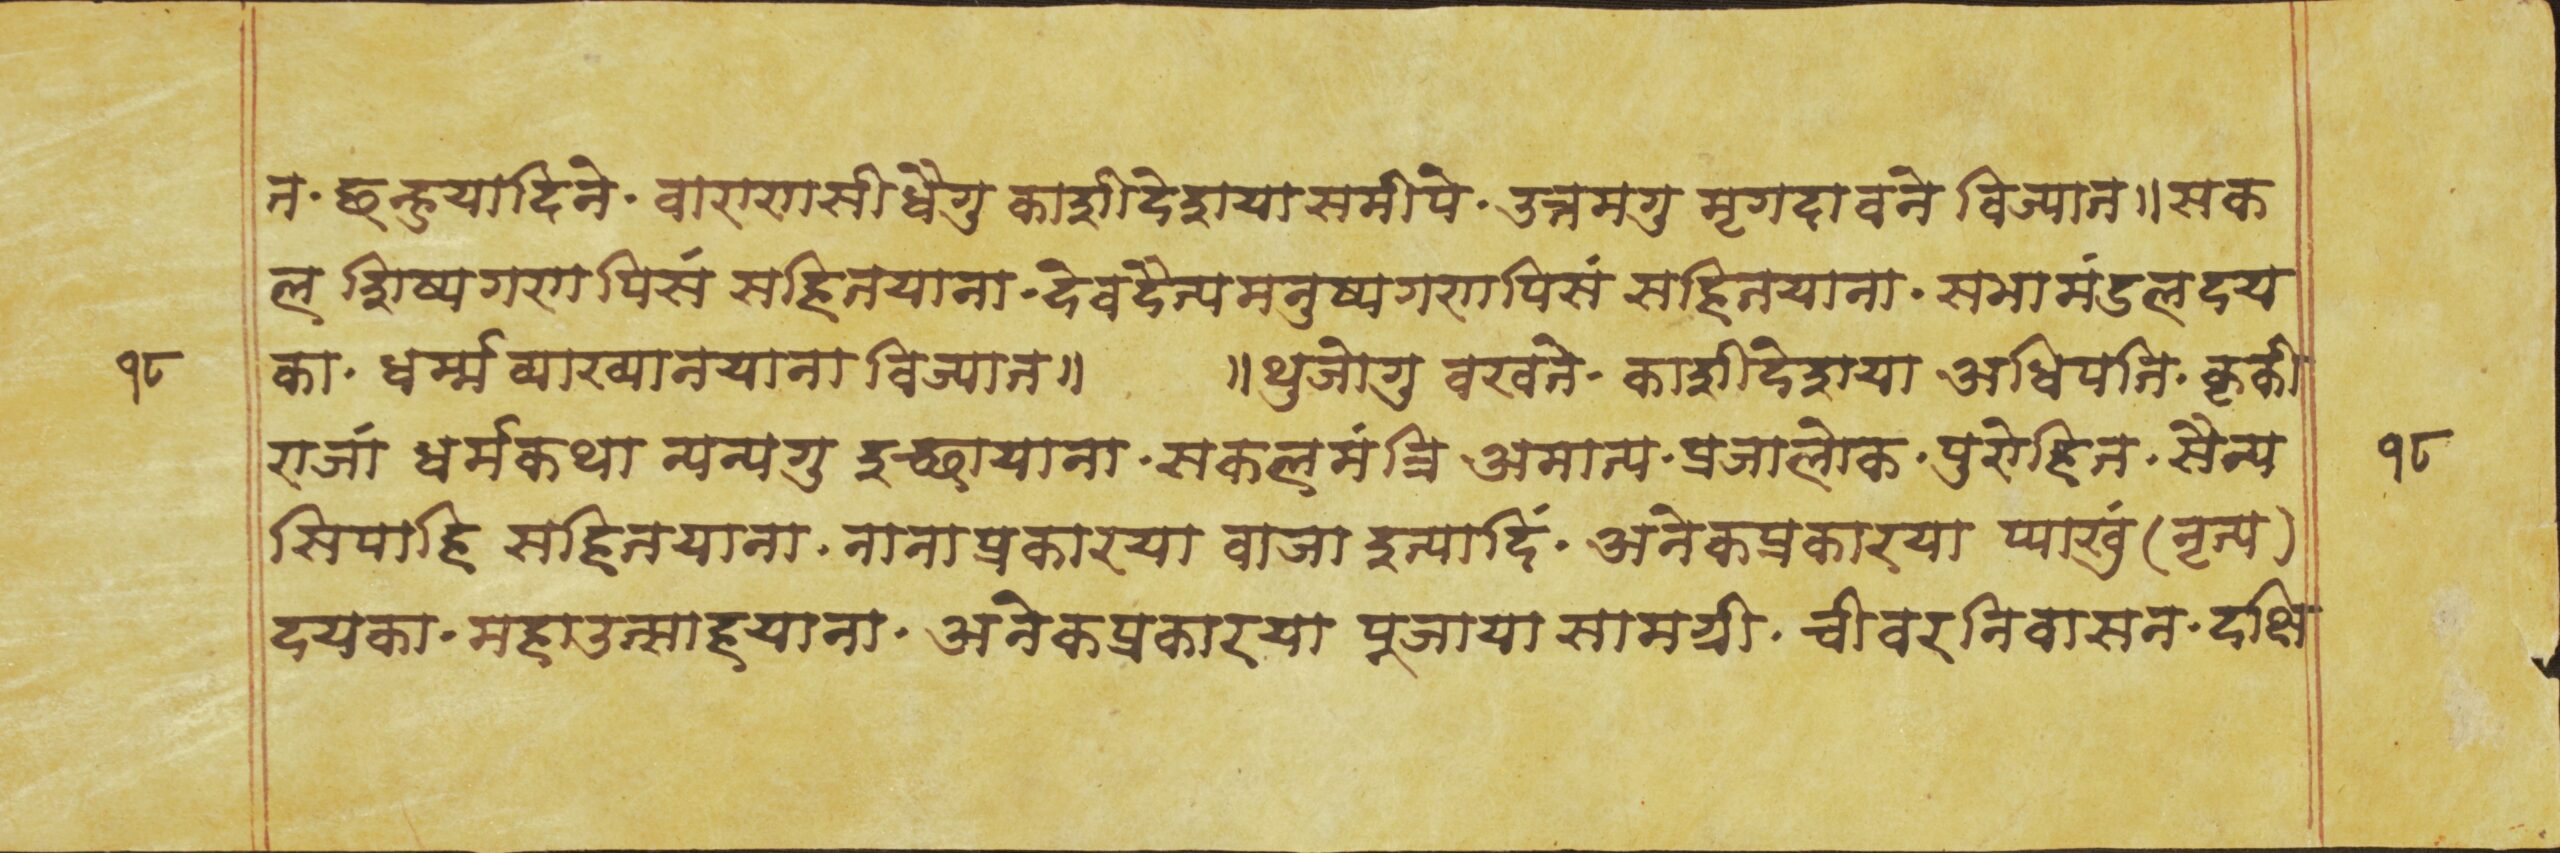 त· छन्हुयादिने· वाराणसीधैगु काशीदेशयासमीपे· उत्तमगु मृगदावने विज्यात॥सक
ल शिष्यगणपिसं सहितयाना·देवदैत्यमनुष्यगणपिसं सहितयाना·सभामंडलदय
१८ का· धर्म्मव्याख्यानयाना विज्यात॥ ॥थुजोगु वखते· काशीदेशया अधिपति·कृकी
राजां धर्मकथा न्यन्यगु इच्छायाना·सकलमंत्रि अमात्य·प्रजालोक·पुरोहित·सैन्य १८
सिपाहि सहितयाना·नानाप्रकारया वाजा इत्यादिं·अनेकप्रकारया प्याखुं(नृत्य)
दयका·महाउत्साहयाना·अनेकप्रकारया पूजायासामग्री·चीवरनिवासन·दक्षि